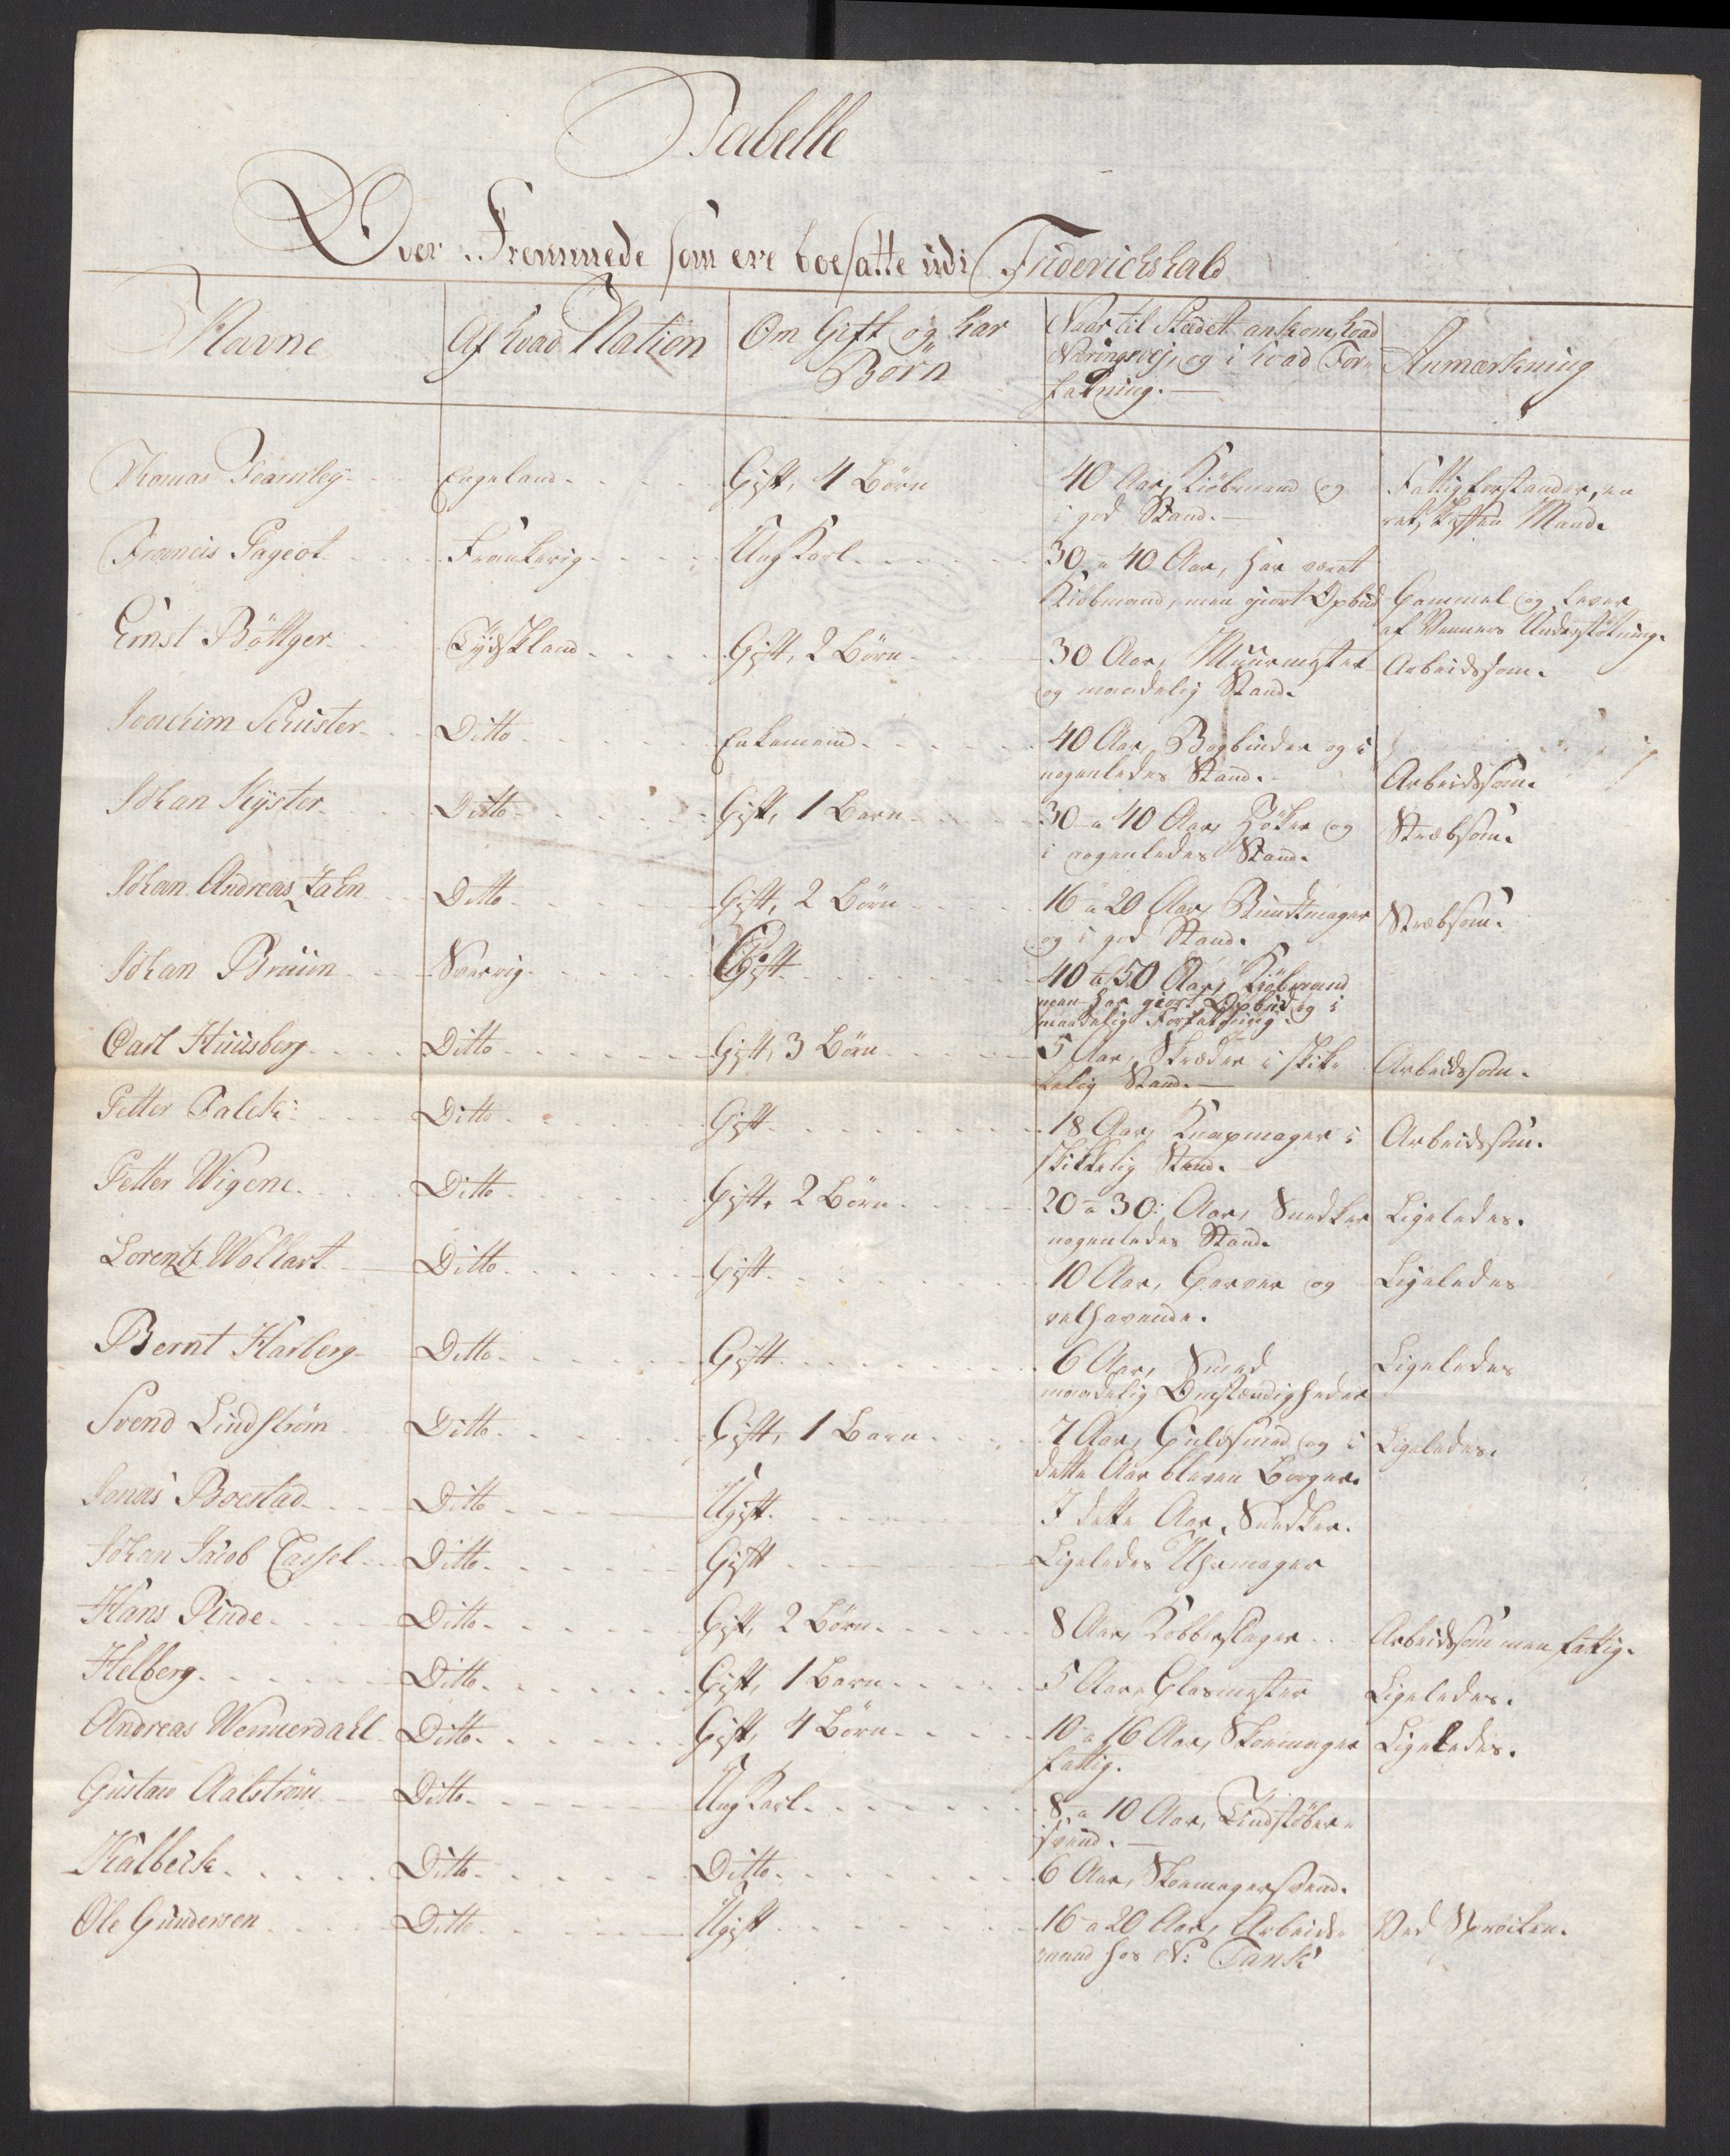 Tabelle
Over Fremmede som ere boesatte udi Friderichshald
Navne
Af hvad Nation
Om Gift og har
Börn
Naar til Stedet ankom, hvad
Næringsvej, og i hvad For-
fatning.
Anmærkning
Thomas Fearnley
Engeland
Gift, 4 Börn
40 Aar, Kiöbmand og
i god Stand.
Fattigforstander, en
retskaffen Mand.
Francis Pageot
Frankerig
Ung Karl
30 a 40 Aar, har været
Kiöbmand, men giort Opbud
Gammel og lever
af Venners Understötning.
Ernst Böttger
Tydskland
Gift, 2 Börn
30 Aar, Muurmester
og maadelig Stand.
Arbeidssom.
Joachim Schuster
Ditto
Enkemand
40 Aar, Bogbinder og i
nogenledes Stand.
Arbeidssom.
Johan Kyster
Ditto
Gift, 1 Barn
30 a 40 Aar, Höker og
i nogenledes Stand.
Stræbsom.
Johan Andreas Zahn
Ditto
Gift, 2 Börn
16 a 20 Aar, Bundtmager
og i god Stand.
Stræbsom.
Johan Bruun
Sverrig
Gift
40 a 50 Aar, Kiöbmand
men har giort Opbud og i
maadelig Forfatning.
Carl Huusberg
Ditto
Gift, 3 Börn
5 Aar, Skræder i skik-
kelig Stand.
Arbeidssom.
Petter Falck
Ditto
Gift
18 Aar, Knapmager i
skikkelig Stand.
Arbeidssom.
Petter Wigene
Ditto
Gift, 2 Börn
20 a 30 Aar, Snedker
nogenledes Stand.
Ligeledes.
Lorentz Wollart
Ditto
Gift
10 Aar, Garver og
velhavende.
Ligeledes
Bernt Harberg
Ditto
Gift
6 Aar, Smed
maadelig Omstændigheder
Ligeledes
Svend Lindström
Ditto
Gift, 1 Barn
7 Aar, Guldsmed og i
dette Aar bleven Borger.
Ligeledes.
Jonas Boestad
Ditto
Ugift.
I dette Aar, Snedker.
Johan Jacob Cassel
Ditto
Gift
Ligeledes Uhrmager
Hans Pinde
Ditto
Gift, 2 Börn
8 Aar, Kobberslager
Arbeidssom men fattig.
Helberg
Ditto
Gift, 1 Barn
5 Aar, Glasmester
Ligeledes.
Andreas Wennerdahl
Ditto
Gift, 4 Börn
10 a 16 Aar, Skoemager
fattig.
Ligeledes.
Gustav Aalström
Ditto
Ung Karl
8 a 10 Aar, Tindstöber-
svend.
Kalbeck
Ditto
Ditto
6 Aar, Skoemagersvend.
Ole Gundersen
Ditto
Ugift
16 a 20 Aar, Arbeids-
mand hos N: Tank
Ved Spröiten.